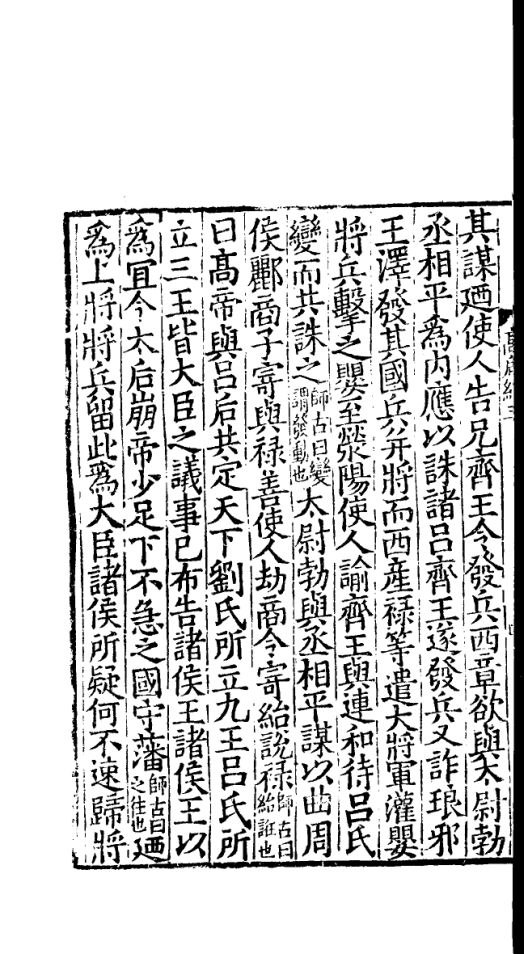 其謀廼使人告兄齊王令發兵西章欲與太尉勃
丞相平爲内應以誅諸吕齊王遂發兵又詐琅邪
王澤發其國兵并將而西產禄等遣大將軍灌嬰
將兵擊之嬰至滎陽使人諭齊王與連和待吕氏
變而共誅之師古曰變謂發動也太尉勃與丞相平謀以曲周
侯酈商子寄與禄善使人劫商令寄紿說禄師古曰紿誑也
曰髙帝與吕后共定天下劉氏所立九王吕氏所
立三王皆大臣之議事已布告諸侯王諸侯王以
爲冝今太后崩帝少足下不急之國守藩師古曰之往也廼
爲上將將兵留此爲大臣諸侯所疑何不速歸將